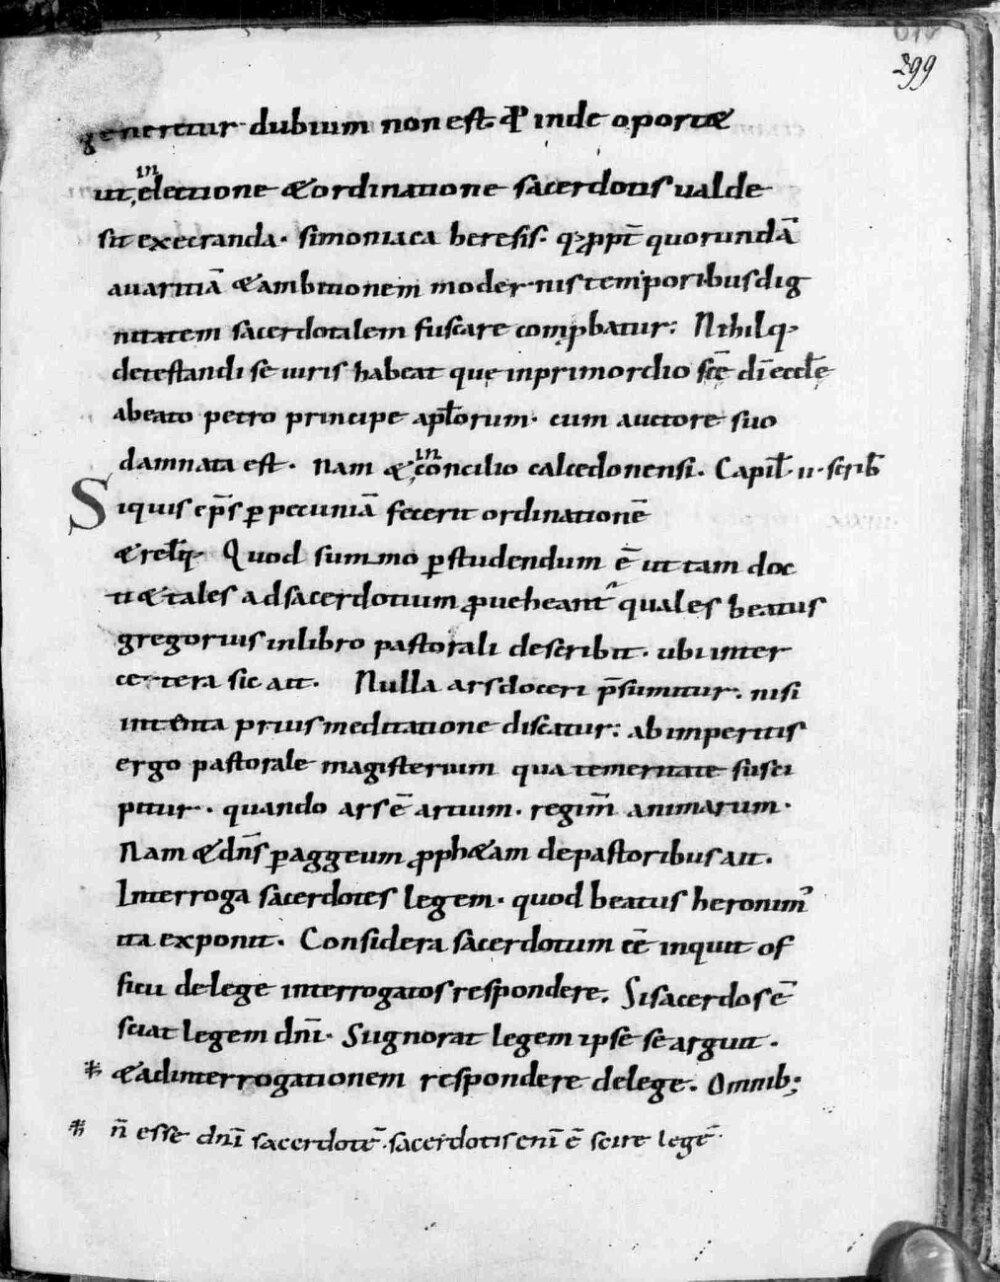 299
generetur dubium non est. Proinde oportet
ut in electione & ordinatione sacerdotis ualde
sit execranda. simoniaca heresis. q; ꝓpt̄ quorundā
auaritiā & ambitionem modernis temporibus dig
nitatem sacerdotalem fuscare comp̱batur: Nihilq;
detestandi se iuris habeat quę in primordio scē dī ecclę
abeato petro principe apłorum. cum auctore suo
damnata est. Nam & in concilio calcedonensi. Capił. ii. scrib̄
Siquis ep̄s ꝑ pecuniā fecerit ordinationē
& reliq̄. Quod summo ꝑstudendum ē ut tam doc
ti & tales ad sacerdotium ꝓueheant᷑ quales beatus
gregorius in libro pastorali describit. ubi inter
cetera sic ait. Nulla ars doceri p̄sumitur. nisi
intenta prius meditatione discatur: ab imperitis
ergo pastorale magisterium qua temeritate susci
pitur. quando ars ē artium. regim̄ animarum.
Nam & dn̄s ꝑ aggeum ꝓph&am de pastoribus ait.
Interroga sacerdotes legem. quod beatus heronim᾿
ita exponit. Considera sacerdotum eē inquit of
ficii de lege interrogatos respondere. Si sacerdos ē
sciat legem dnī. Si ignorat legem ipse se arguit.
* & ad interrogationem respondere de lege. Omnib;
* n̄ esse dnī sacerdotē. sacerdotis enī ē scire legē.